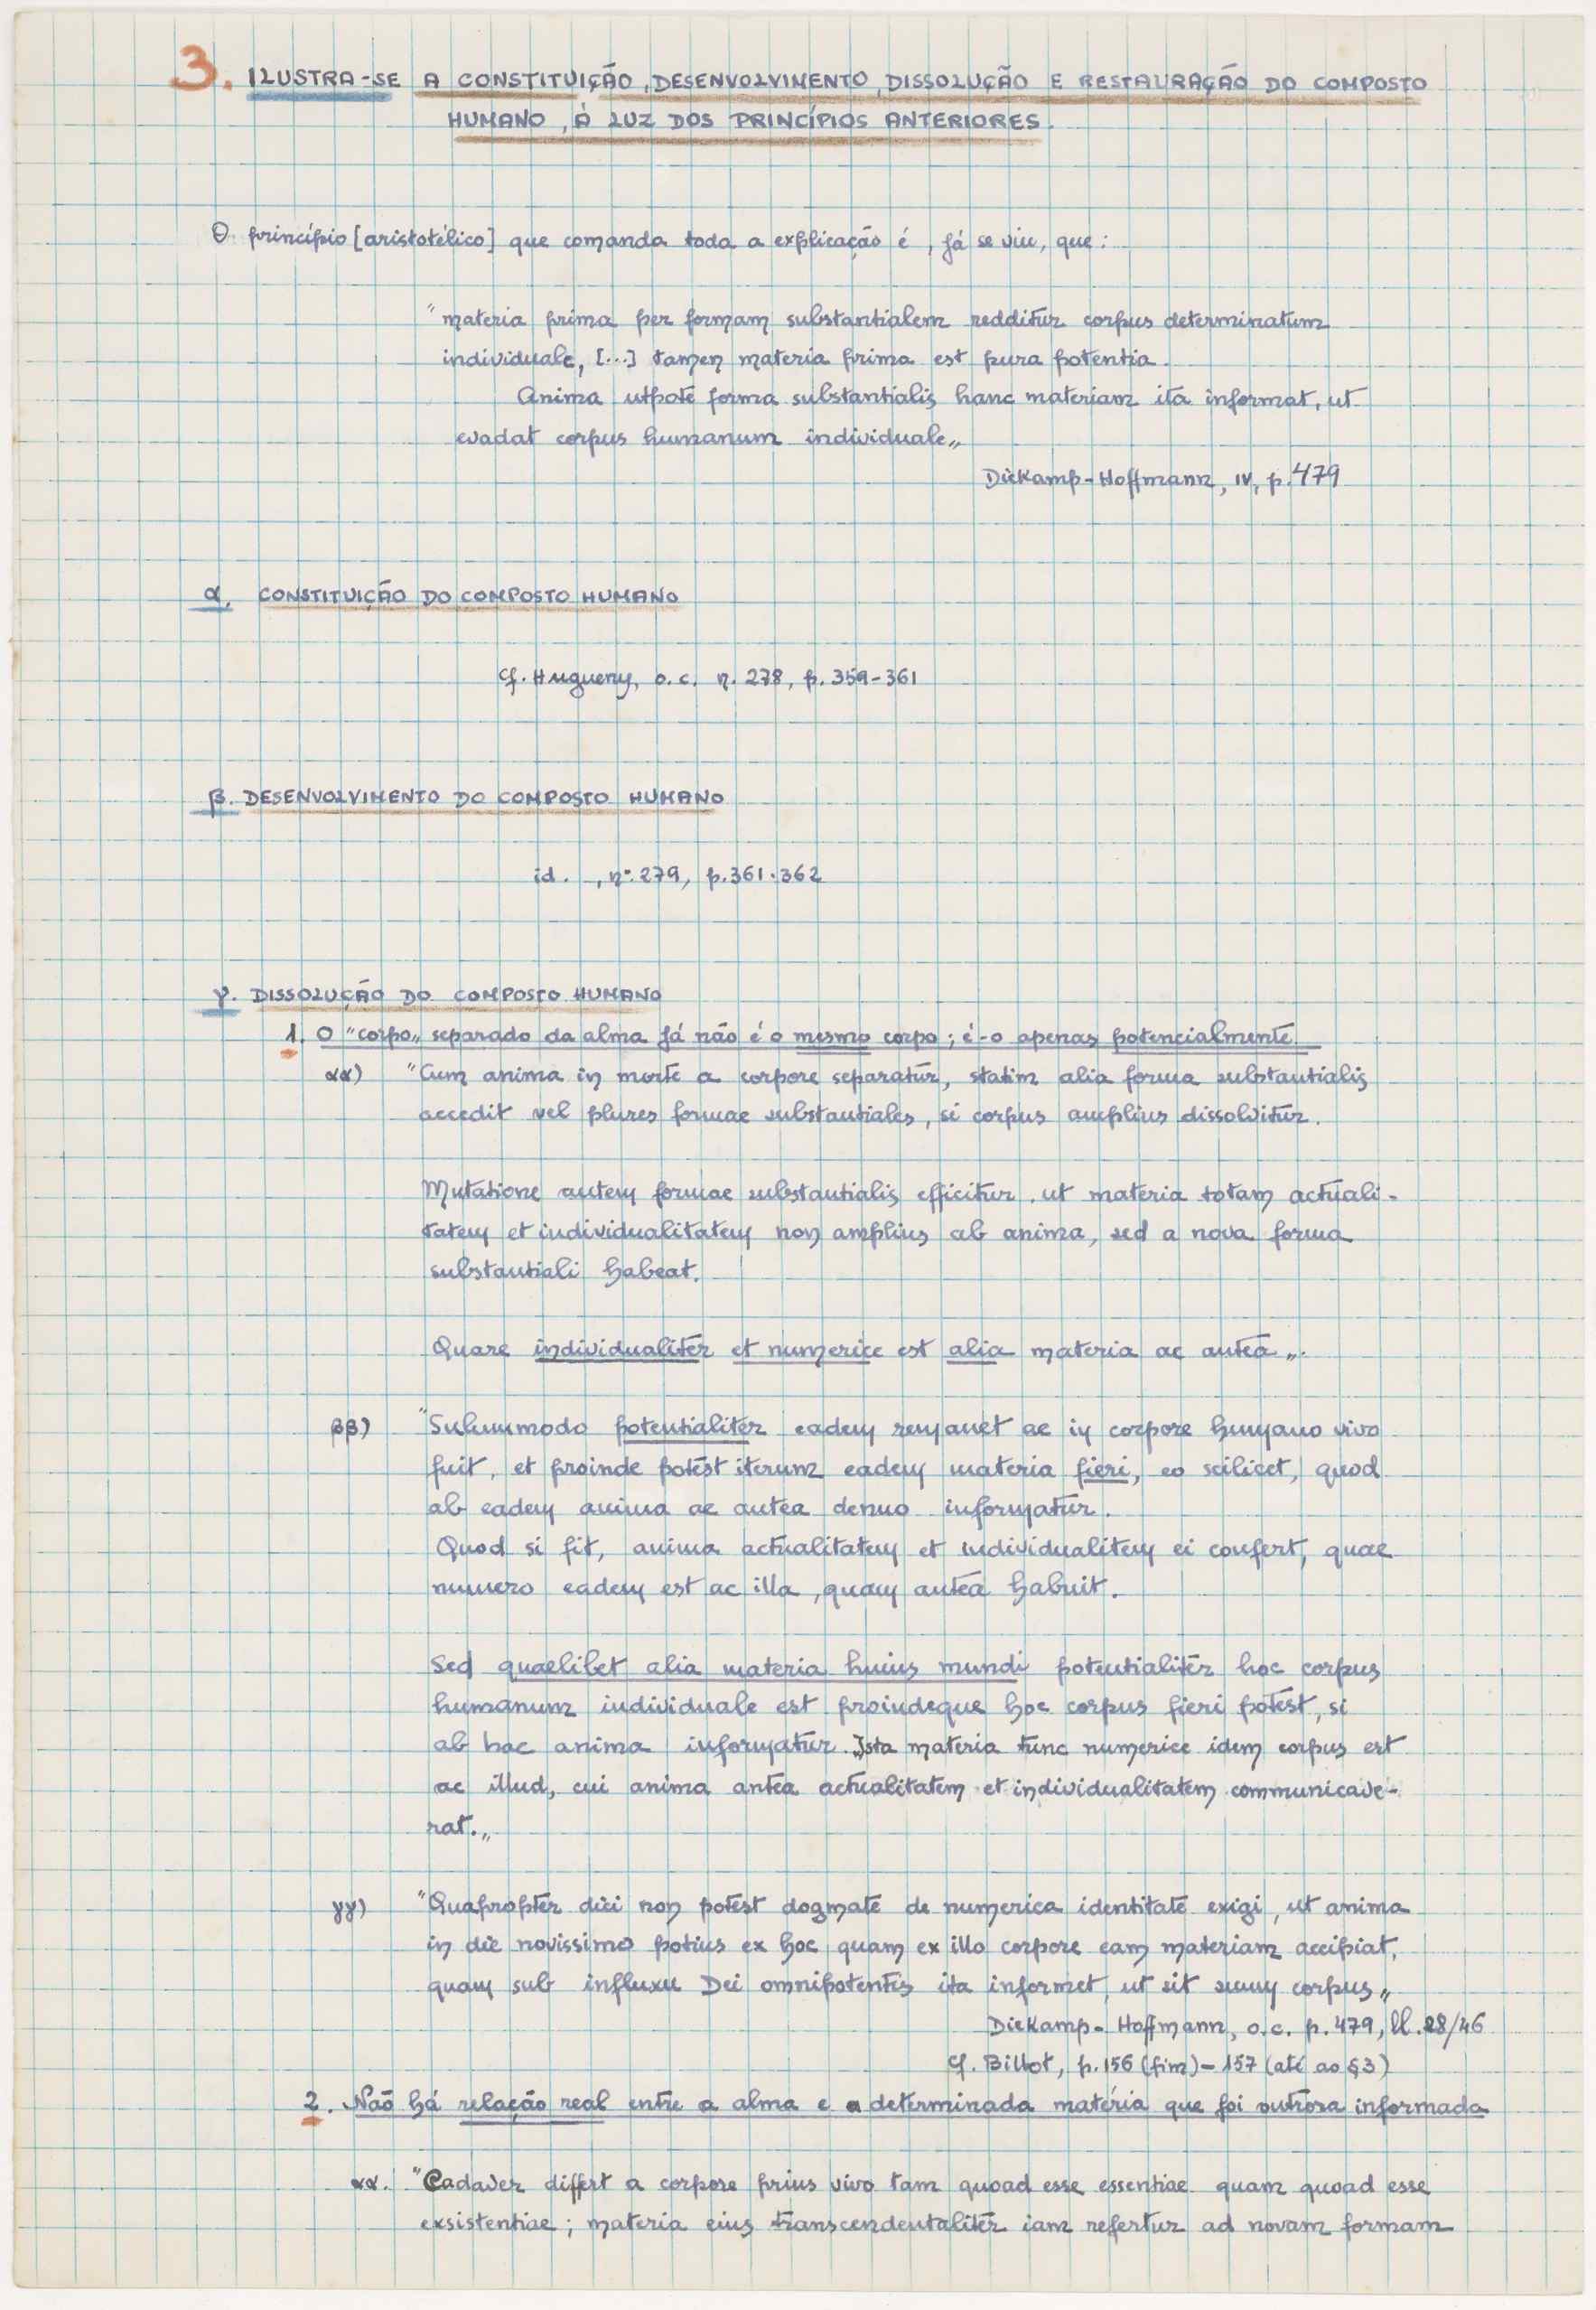 3. ILUSTRA-SE A CONSTITUIÇÃO, DESENVOLVIMENTO, DISSOLUÇÃO E RESTAURAÇÃO DO COMPOSTO
HUMANO, À LUZ DOS PRINCÍPIOS ANTERIORES.
O princípio [aristotélico] que comanda toda a explicação é, já se viu, que:
"materia prima per formam substantialem redditur corpus determinatum
individuale, [...] tamen materia prima est pura potentia.
Anima utpote forma substantialis hanc materiam ita informat, ut
evadat corpus humanum individuale„
Diekamp-Hoffmann, IV, p. 479
α. CONSTITUIÇÃO DO COMPOSTO HUMANO
Cf. Hugueny, o.c. n. 278, p. 359-361
β. DESENVOLVIMENTO DO COMPOSTO HUMANO
id. , nº. 279, p. 361.362
γ. DISSOLUÇÃO DO COMPOSTO HUMANO
1. O "corpo„ separado da alma já não é o mesmo corpo; é-o apenas potencialmente
αα) "Cum anima in morte a corpore separatur, statim alia forma substantialis
accedit vel plures formae substantiales, si corpus amplius dissolvitur.
Mutatione autem formae substantialis efficitur, ut materia totam actuali-
tatem et individualitatem non amplius ab anima, sed a nova forma
substantiali habeat.
Quare individualiter et numerice est alia materia ac antea„.
ββ) "Solummodo potentialiter eadem remanet ac in corpore humano vivo
fuit, et proinde potest iterum eadem materia fieri, eo scilicet, quod
ab eadem anima ac antea denuo informatur.
Quod si fit, anima actualitatem et individualitem ei confert, quae
numero eadem est ac illa, quam antea habuit.
Sed quaelibet alia materia huius mundi potentialiter hoc corpus
humanum individuale est proindeque hoc corpus fieri potest, si
ab hac anima informatur. Ista materia tunc numerice idem corpus est
ac illud, cui anima antea actualitatem et individualitatem communicave-
rat.„
γγ) "Quapropter dici non potest dogmate de numerica identitate exigi, ut anima
in die novissimo potius ex hoc quam ex illo corpore eam materiam accipiat,
quam sub influxu Dei omnipotentis ita informet, ut sit suum corpus„
Diekamp-Hoffmann, o.c. p. 479, ll. 28/46
Cf. Billot, p. 156 (fim) - 157 (até ao §3)
2. Não há relação real entre a alma e a determinada matéria que foi outrora informada
αα. "Cadaver differt a corpore prius vivo tam quoad esse essentiae quam quoad esse
exsistentiae; materia eius transcendentaliter iam refertur ad novam formam